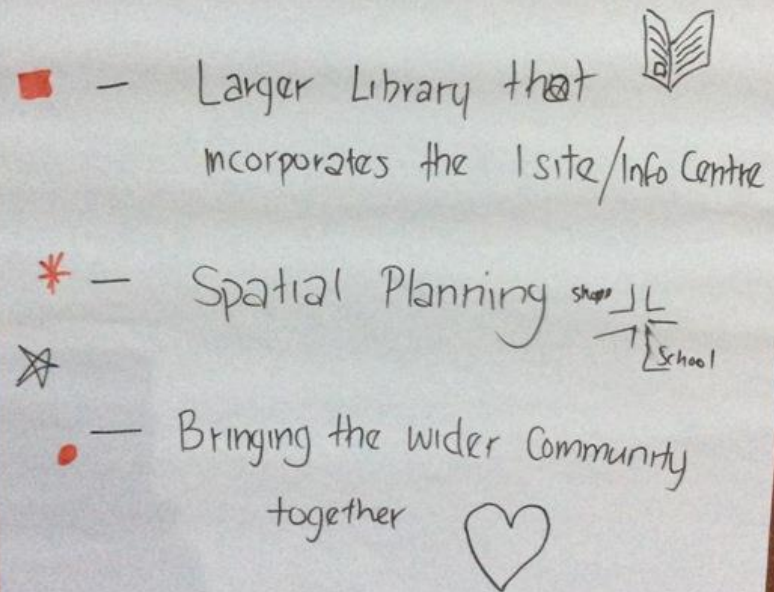 – Larger Library that
incorporates the Isite/Info Centre
* – Spatial Planning
shops
School
– Bringing the wider Community
together